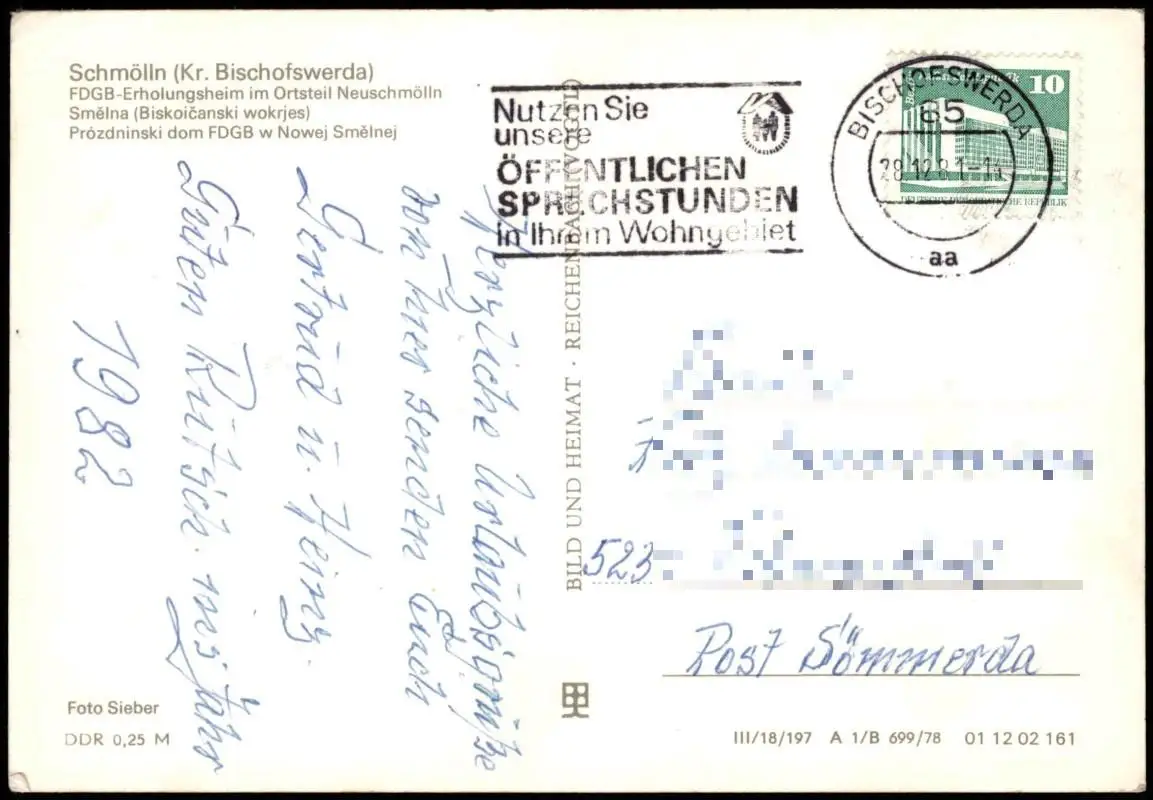 Schmölln (Kr. Bischofswerda)
FDGB-Erholungsheim im Ortsteil Neuschmölln
Smělna (Biskoičanski wokrjes)
Prózdninski dom FDGB w Nowej Smělnej
Nutzen Sie
unsere
ÖFFENTLICHEN
SPRECHSTUNDEN
in Ihrem Wohngebiet
BISCHOFSWERDA
85
28.12.81-14
aa
10
DEUTSCHE DEMOKRATISCHE REPUBLIK
Herzliche Urlaubsgrüße
von hier senden Euch
Gertrud u. Heinz.
Guten Rutsch ins Jahr
1982
BILD UND HEIMAT · REICHENBACH (VOGTL)
523
Post Sömmerda
Foto Sieber
DDR 0,25 M
III/18/197 A 1/B 699/78 01 12 02 161